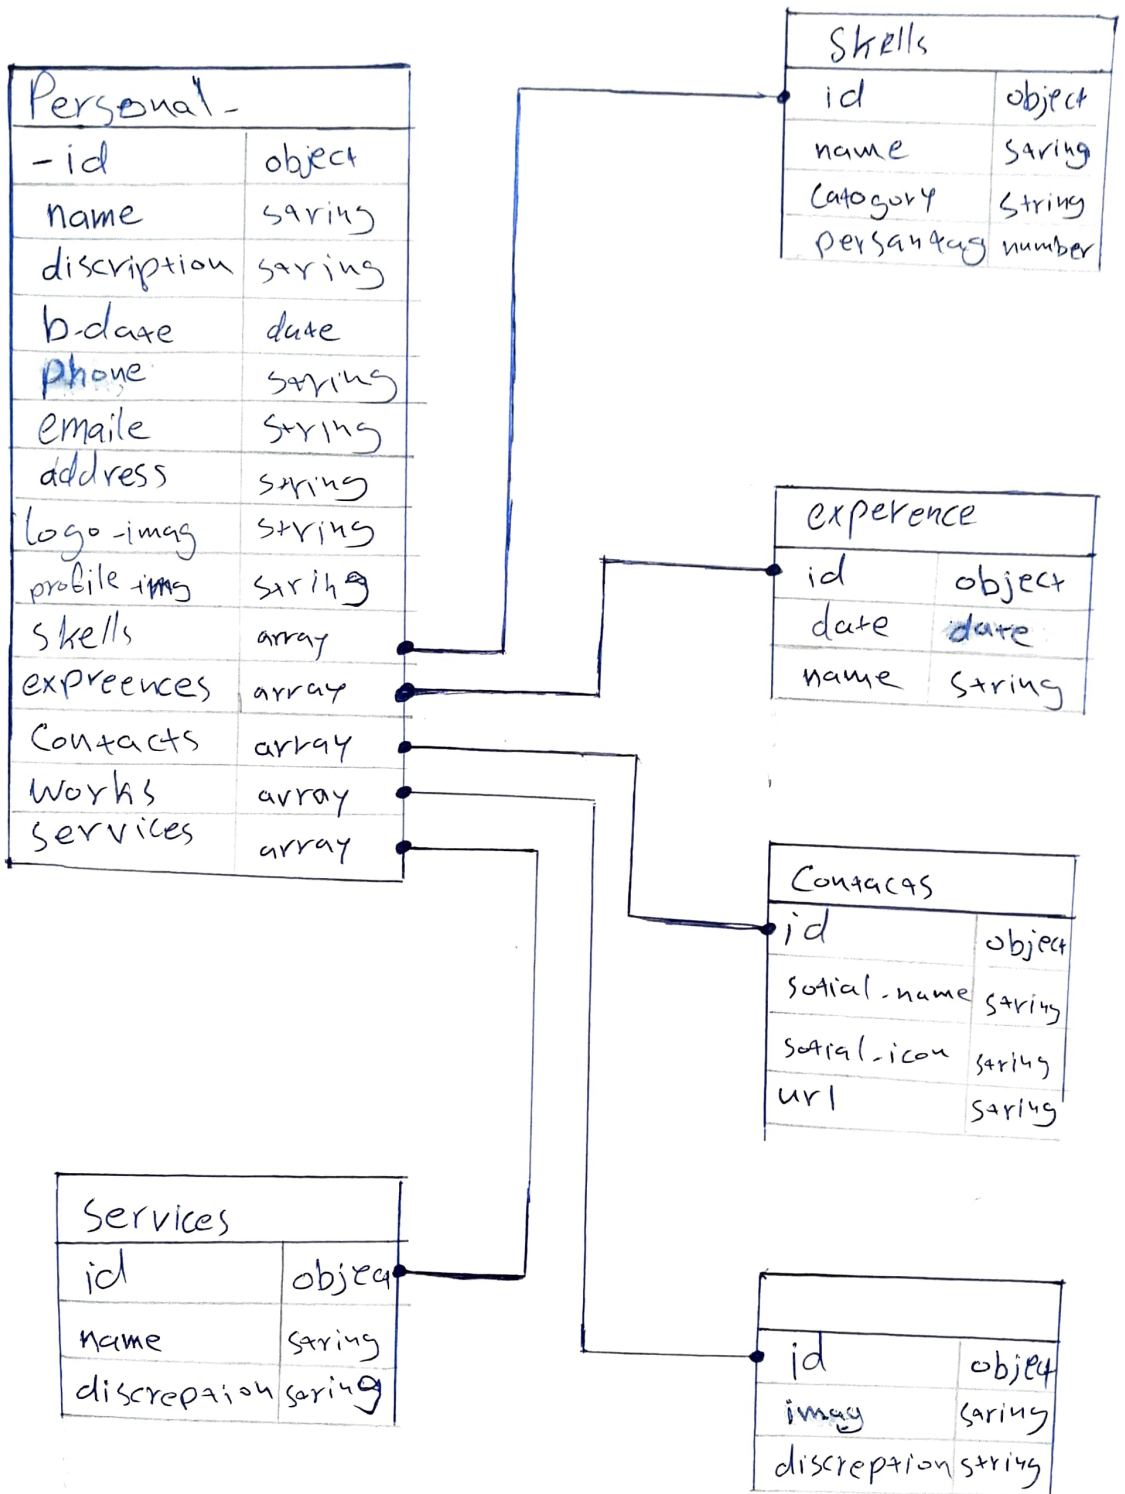 Personal-
-id object
name string
discription string
b-date date
phone string
emaile string
address string
logo-imag string
profile-img string
skells array
expreences array
Contacts array
works array
services array
Skells
id object
name string
Catogory string
persantag number
experence
id object
date date
name string
Contacts
id object
sotial-name string
sotial-icon string
url string
Services
id object
name string
discreption string
id object
imag string
discreption string